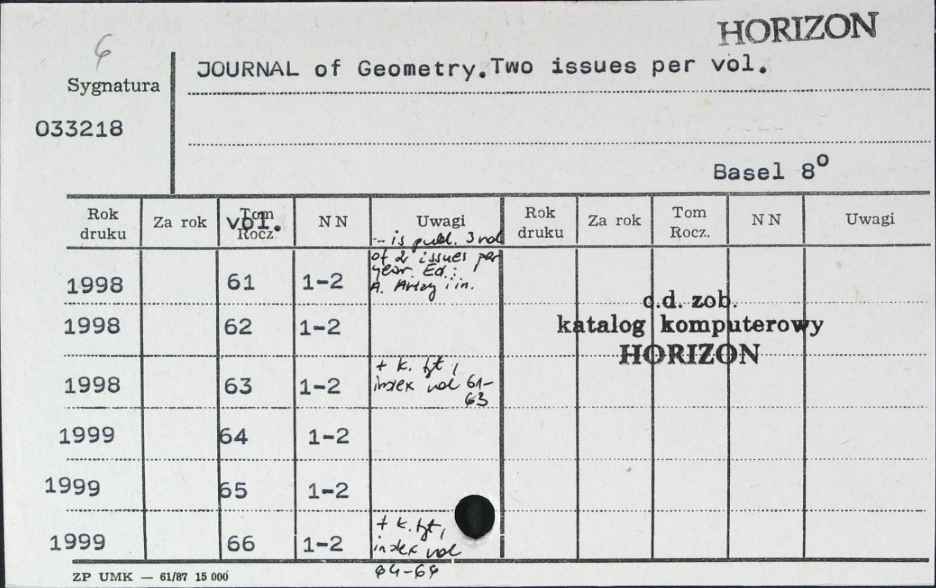 HORIZON
6
JOURNAL of Geometry. Two issues per vol.
Sygnatura
033218
Basel 8°
Rok druku Za rok Tom Rocz. vol. N N Uwagi Rok druku Za rok Tom Rocz. N N Uwagi
- is publ. 3 vol
of 2 issues per
year. Ed.:
1998 61 1-2 A. i in.
c.d. zob.
1998 62 1-2 katalog komputerowy
HORIZON
+ k. tyt,
1998 63 1-2 index vol 61-
63
1999 64 1-2
1999 65 1-2
+ k. tyt,
1999 66 1-2 index vol
64-66
ZP UMK — 61/87 15 000